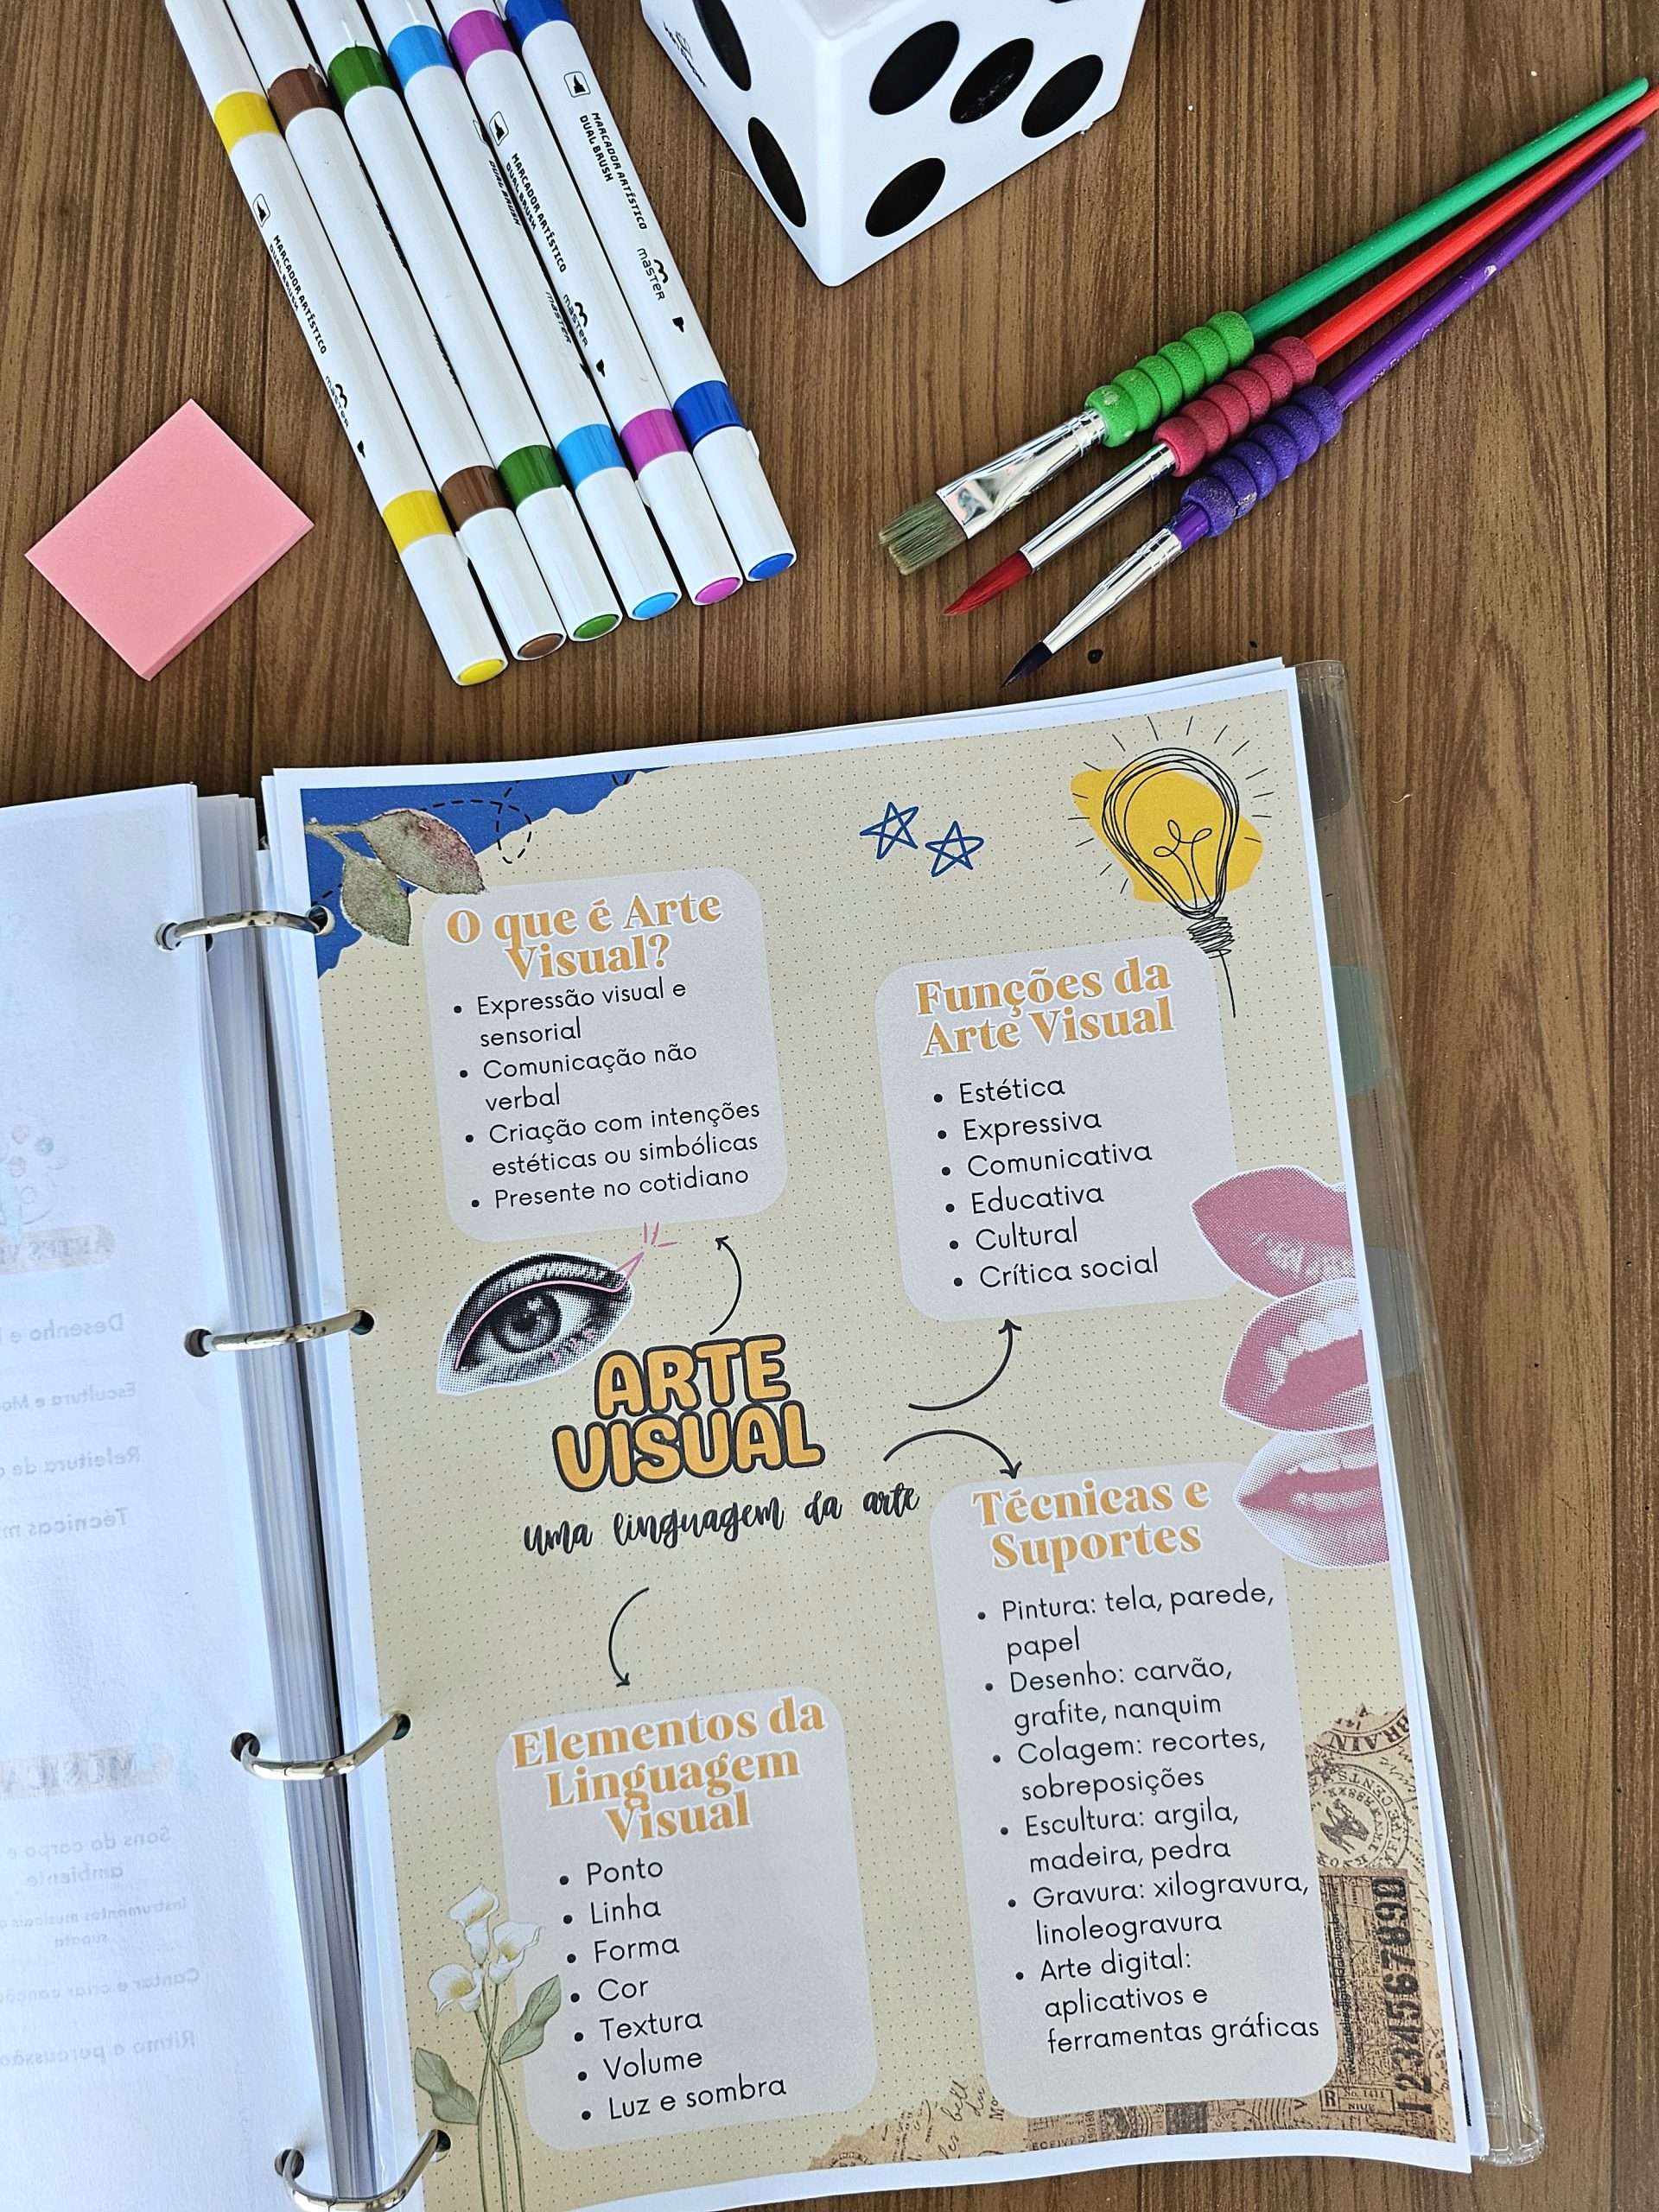 MARCADOR ARTÍSTICO
DUAL BRUSH
master
MARCADOR ARTÍSTICO
DUAL BRUSH
master
MARCADOR ARTÍSTICO
DUAL BRUSH
master
O que é Arte
Visual?
• Expressão visual e
sensorial
• Comunicação não
verbal
• Criação com intenções
estéticas ou simbólicas
• Presente no cotidiano
Funções da
Arte Visual
• Estética
• Expressiva
• Comunicativa
• Educativa
• Cultural
• Crítica social
ARTE
VISUAL
uma linguagem da arte
Técnicas e
Suportes
• Pintura: tela, parede,
papel
• Desenho: carvão,
grafite, nanquim
• Colagem: recortes,
sobreposições
• Escultura: argila,
madeira, pedra
• Gravura: xilogravura,
linoleogravura
• Arte digital:
aplicativos e
ferramentas gráficas
Elementos da
Linguagem
Visual
• Ponto
• Linha
• Forma
• Cor
• Textura
• Volume
• Luz e sombra
1234567890
R No. 1411
NIUE